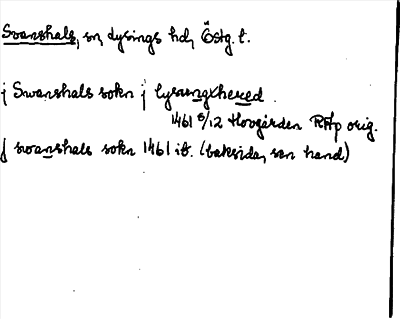 Svanshals, sn, Lysings hd, Östg. l.
j Swanshals sokn j lysungxhered.
1461 8/12 Hovgården RAp orig.
J swanshals sokn 1461 ib. (baksida, sen hand)